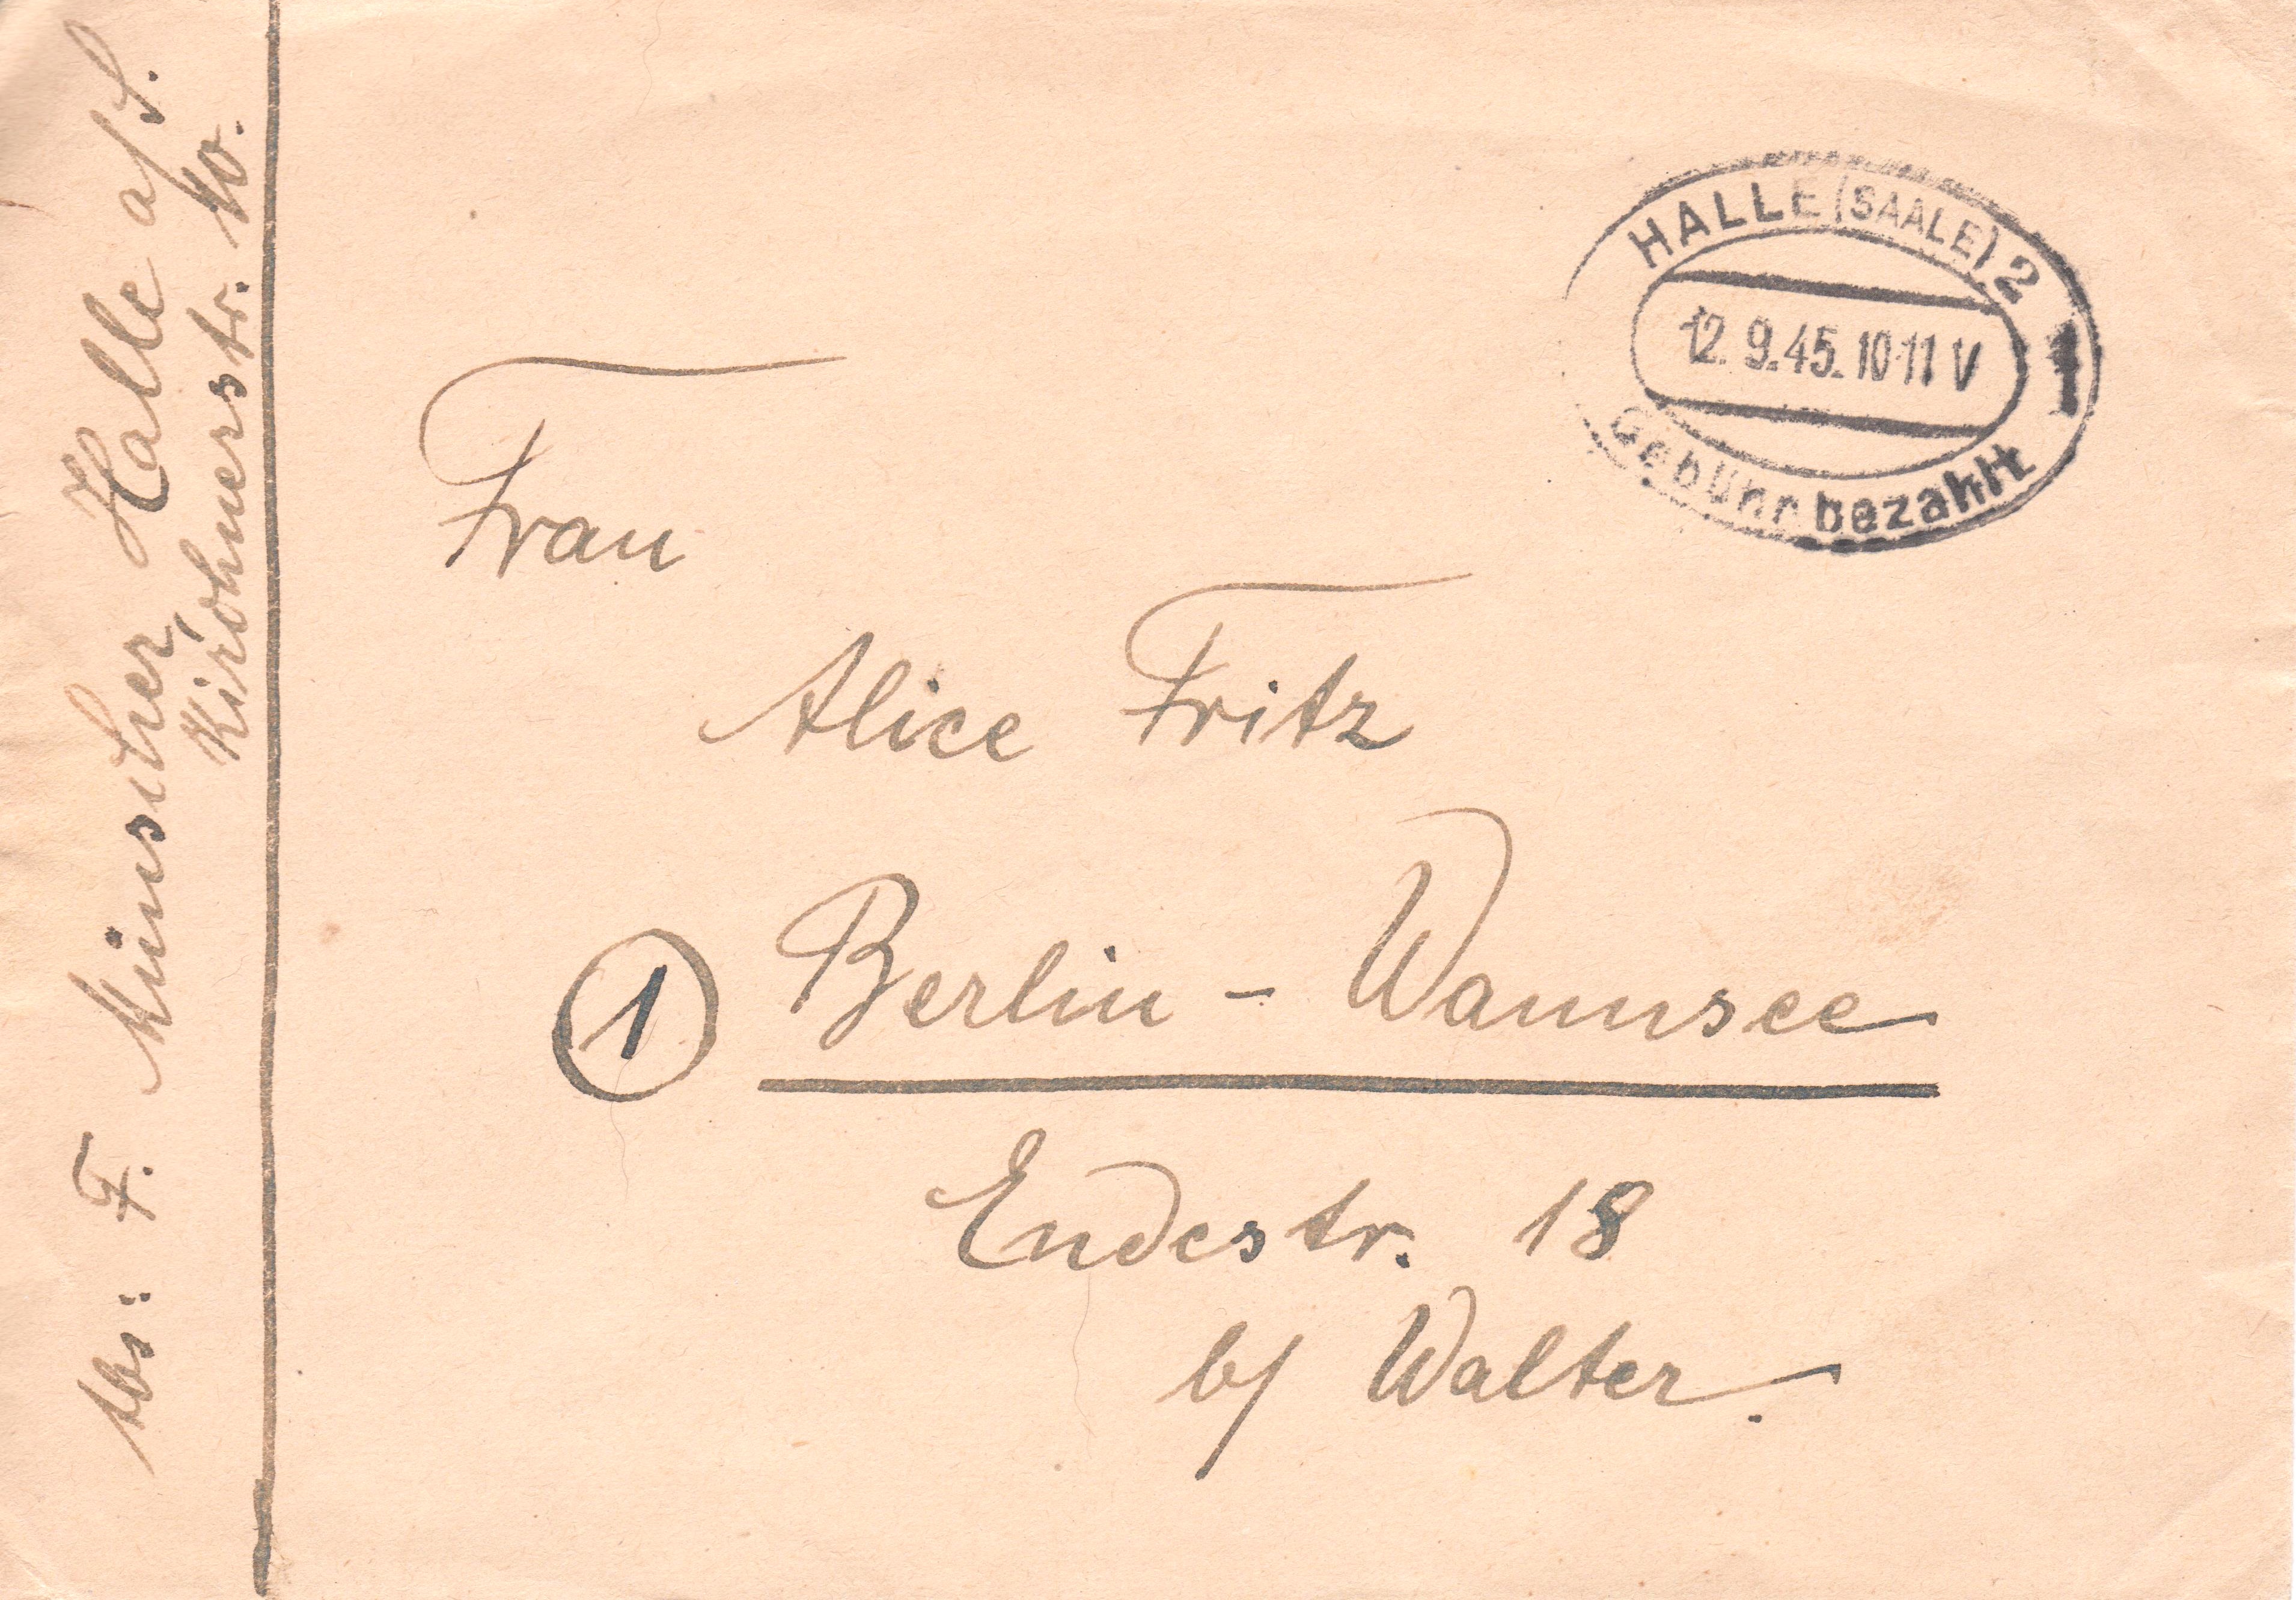 Abs: F. Münscher, Halle a/S.
Kirchnerstr. 10.
HALLE (SAALE) 2
12.9.45.10-11 V
Gebühr bezahlt
Frau
Alice Fritz
① Berlin - Wannsee
Endestr. 18
b/ Walter.